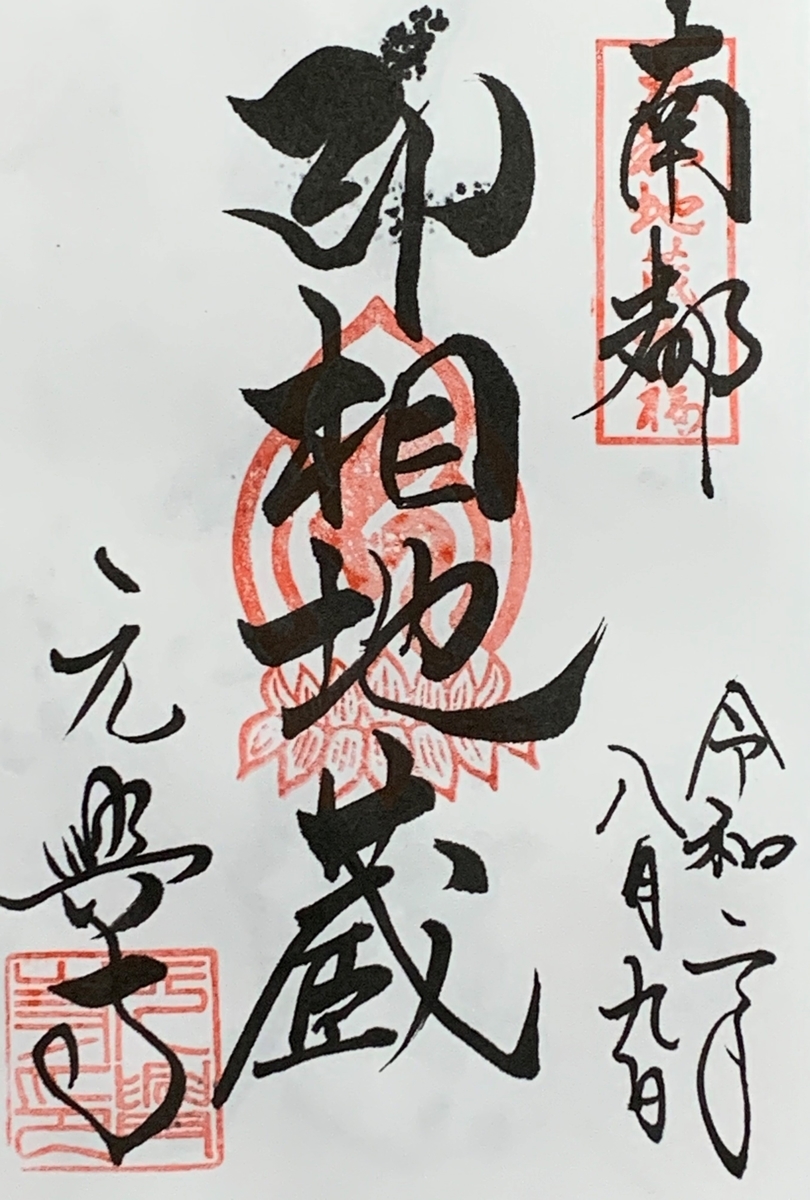 南都
令和二年
八月九日
印相地蔵
元興寺